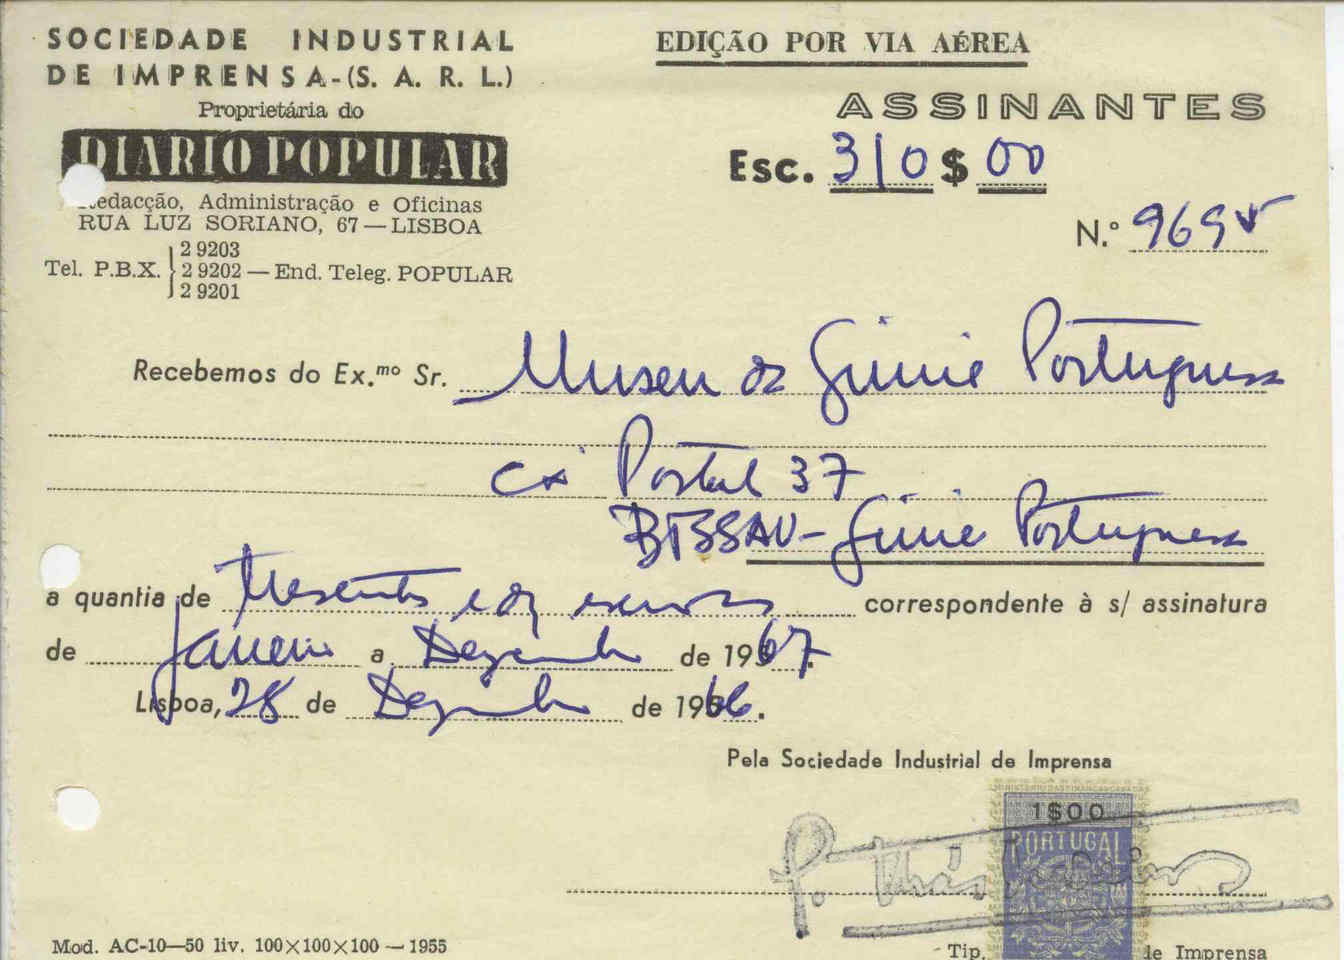 SOCIEDADE INDUSTRIAL
DE IMPRENSA-(S. A. R. L.)
Proprietária do
DIARIO POPULAR
Redacção, Administração e Oficinas
RUA LUZ SORIANO, 67 — LISBOA
Tel. P.B.X. 2 9203
2 9202 — End. Teleg. POPULAR
2 9201
EDIÇÃO POR VIA AÉREA
ASSINANTES
Esc. 310$00
N.º 9695
Recebemos do Ex.mo Sr. Museu da Guiné Portuguesa
Cx Postal 37
BISSAU - Guiné Portuguesa
a quantia de trezentos e dez escudos correspondente à s/ assinatura
de Janeiro a Dezembro de 1967.
Lisboa, 28 de Dezembro de 1966.
Pela Sociedade Industrial de Imprensa
1$00
PORTUGAL
P.
Mod. AC-10—50 liv. 100×100×100 — 1955
Tip. de Imprensa